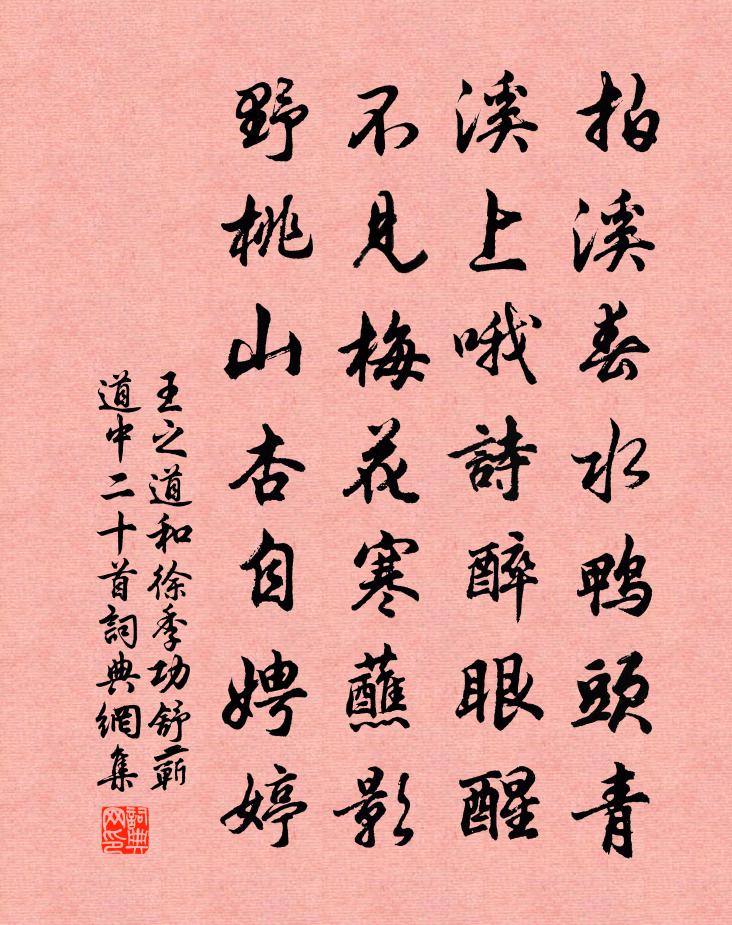 拍溪春水鴨頭青
溪上哦詩醉眼醒
不見梅花寒蘸影
野桃山杏自娉婷
王之道和徐季功舒蘄
道中二十首詞典網集
詞典网印